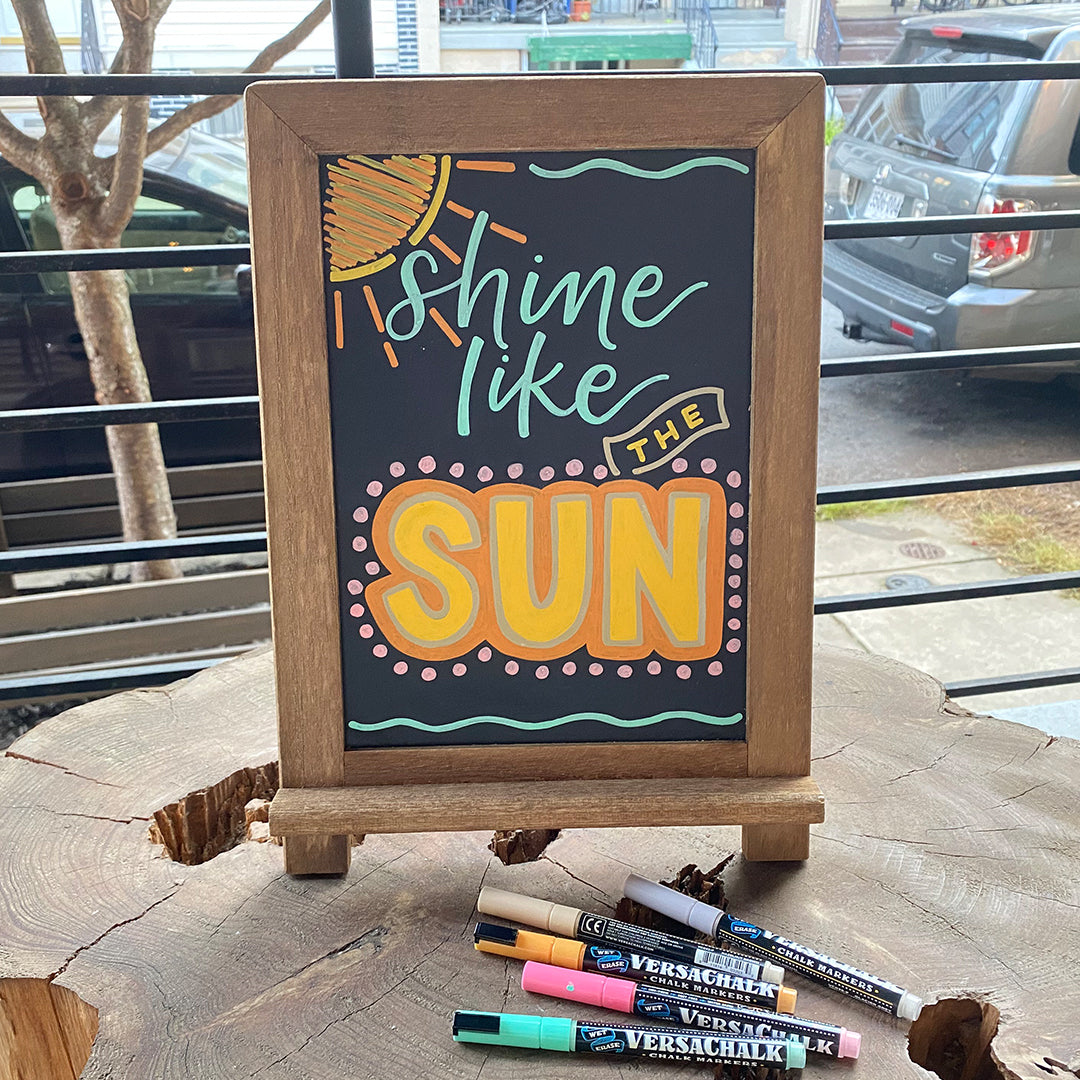 shine
like
THE
SUN
CE
VERSACHALK
WET
ERASE
VERSACHALK
CHALK MARKERS
WET
ERASE
VERSACHALK
CHALK MARKERS
WET
ERASE
VERSACHALK
CHALK MARKERS
WET
ERASE
VERSACHALK
CHALK MARKERS